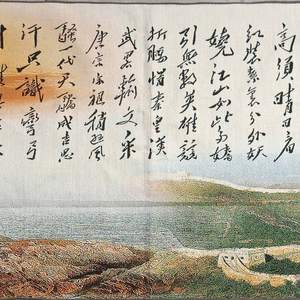 高須晴日看
紅裝素裹分外妖
嬈江山如此多嬌
引無數英雄競
折腰惜秦皇漢
武略輸文采
唐宗宋祖稍遜風
騷一代天驕成吉思
汗只識彎弓